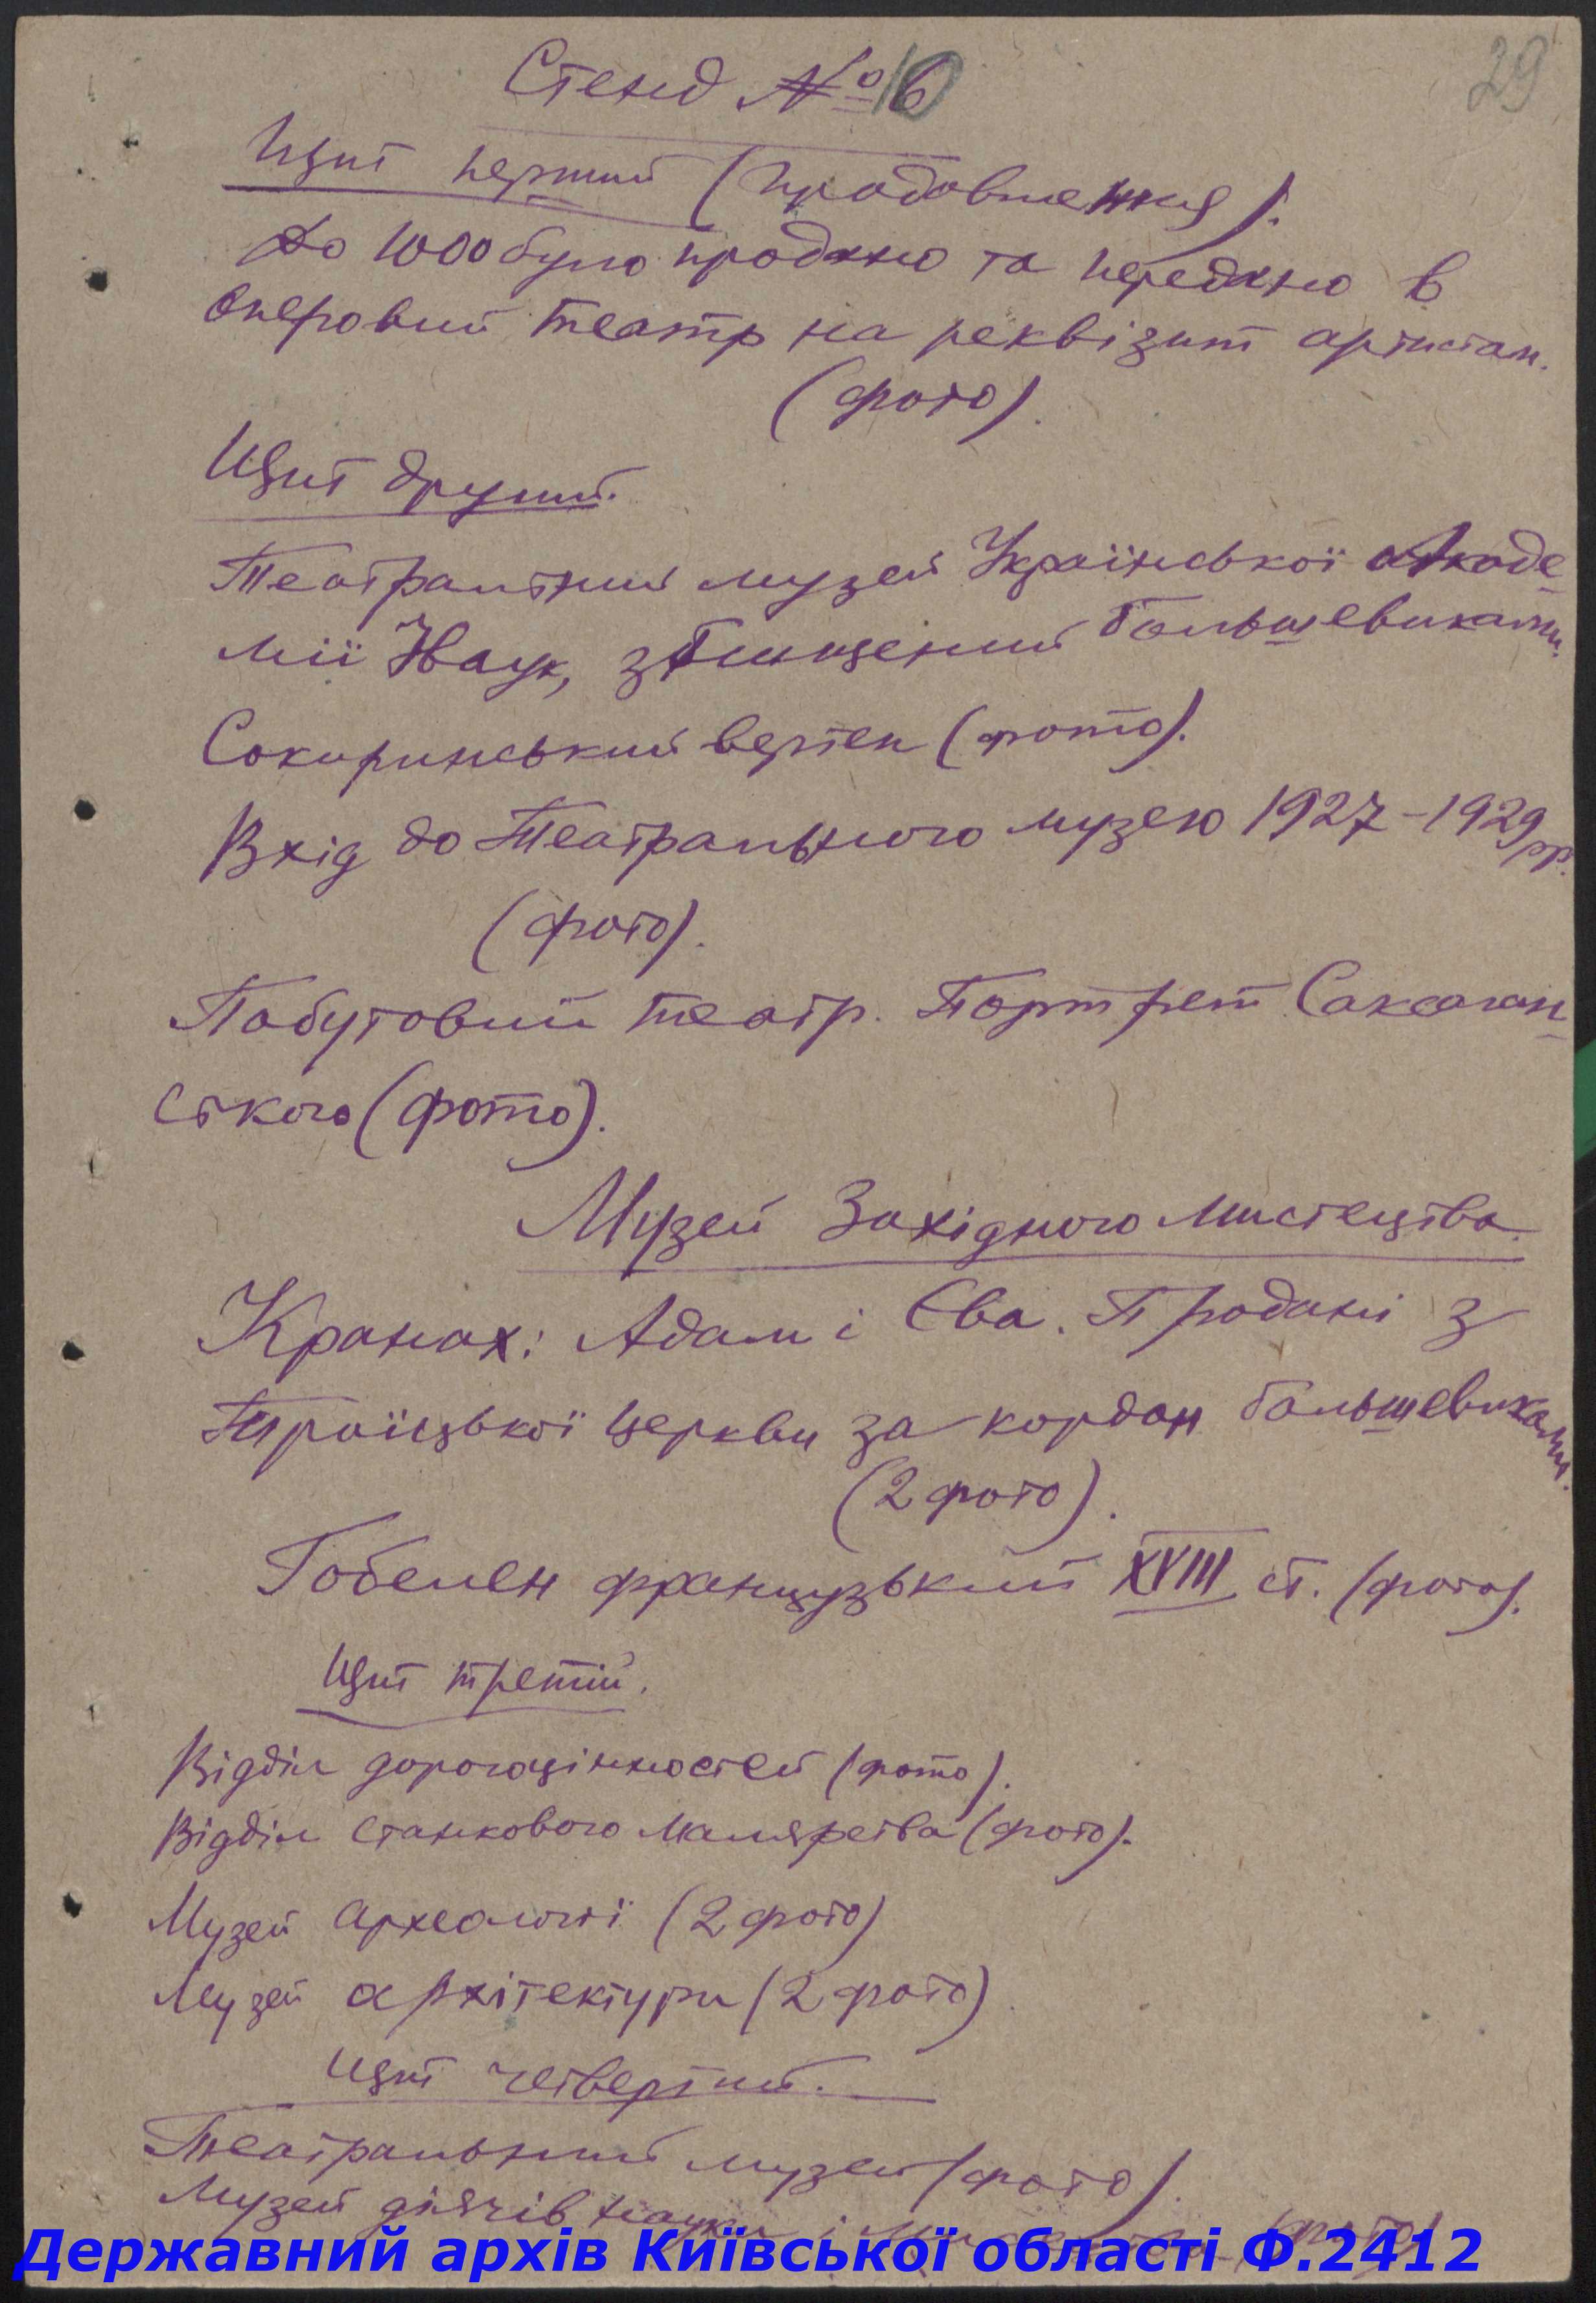 29
Стенд № 10
Щит перший (продовження).
До 1000 було продано та передано в
оперовий театр на реквізит артистам.
(фото).
Щит другий.
Театральний музей Української Акаде
мії Наук, знищений большевиками.
Сокиринський вертеп (фото).
Вхід до Театрального музею 1927-1929 рр.
(фото).
Побутовий театр. Портрет Саксаган
ського (фото).
Музей Західного Мистецтва.
Кранах: Адам і Єва. Продані з
Троїцької церкви за кордон большевиками.
(2 фото).
Гобелен французький XVIII ст. (фото).
Щит третій.
Відділ дорогоцінностей (фото).
Відділ станкового малярства (фото).
Музей археології (2 фото)
Музей архітектури (2 фото)
Щит четвертий.
Театральний музей (фото).
Музей діячів науки і мистецтва (фото)
Державний архів Київської області Ф.2412